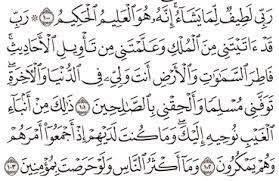 رَبِّى لَطِيفٌ لِّمَا يَشَآءُ ۚ إِنَّهُۥ هُوَ ٱلْعَلِيمُ ٱلْحَكِيمُ ۝١٠٠ رَبِّ
قَدْ ءَاتَيْتَنِى مِنَ ٱلْمُلْكِ وَعَلَّمْتَنِى مِن تَأْوِيلِ ٱلْأَحَادِيثِ ۚ
فَاطِرَ ٱلسَّمَٰوَٰتِ وَٱلْأَرْضِ أَنتَ وَلِىِّۦ فِى ٱلدُّنْيَا وَٱلْأَخِرَةِ ۖ
تَوَفَّنِى مُسْلِمًا وَأَلْحِقْنِى بِٱلصَّٰلِحِينَ ۝١٠١ ذَٰلِكَ مِنْ أَنۢبَآءِ
ٱلْغَيْبِ نُوحِيهِ إِلَيْكَ ۖ وَمَا كُنتَ لَدَيْهِمْ إِذْ أَجْمَعُوٓا۟ أَمْرَهُمْ
وَهُمْ يَمْكُرُونَ ۝١٠٢ وَمَآ أَكْثَرُ ٱلنَّاسِ وَلَوْ حَرَصْتَ بِمُؤْمِنِينَ ۝١٠٣